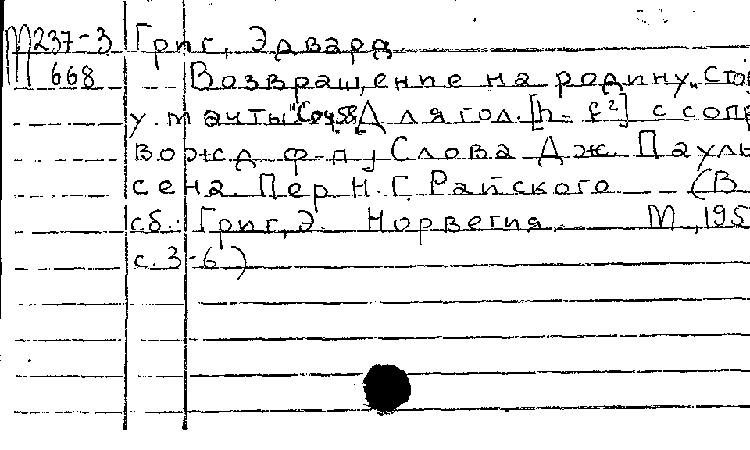 М237-3 Григ, Эдвард
668 Возвращение на родину „Стою
у мачты" Соч 58 Для гол. [h - f²] с сопр
вожд ф-п, Слова Дж. Пауль
сена. Пер Н. Г. Райского (В
сб.: Григ, Э. Норвегия. М, 195
с. 3-6)